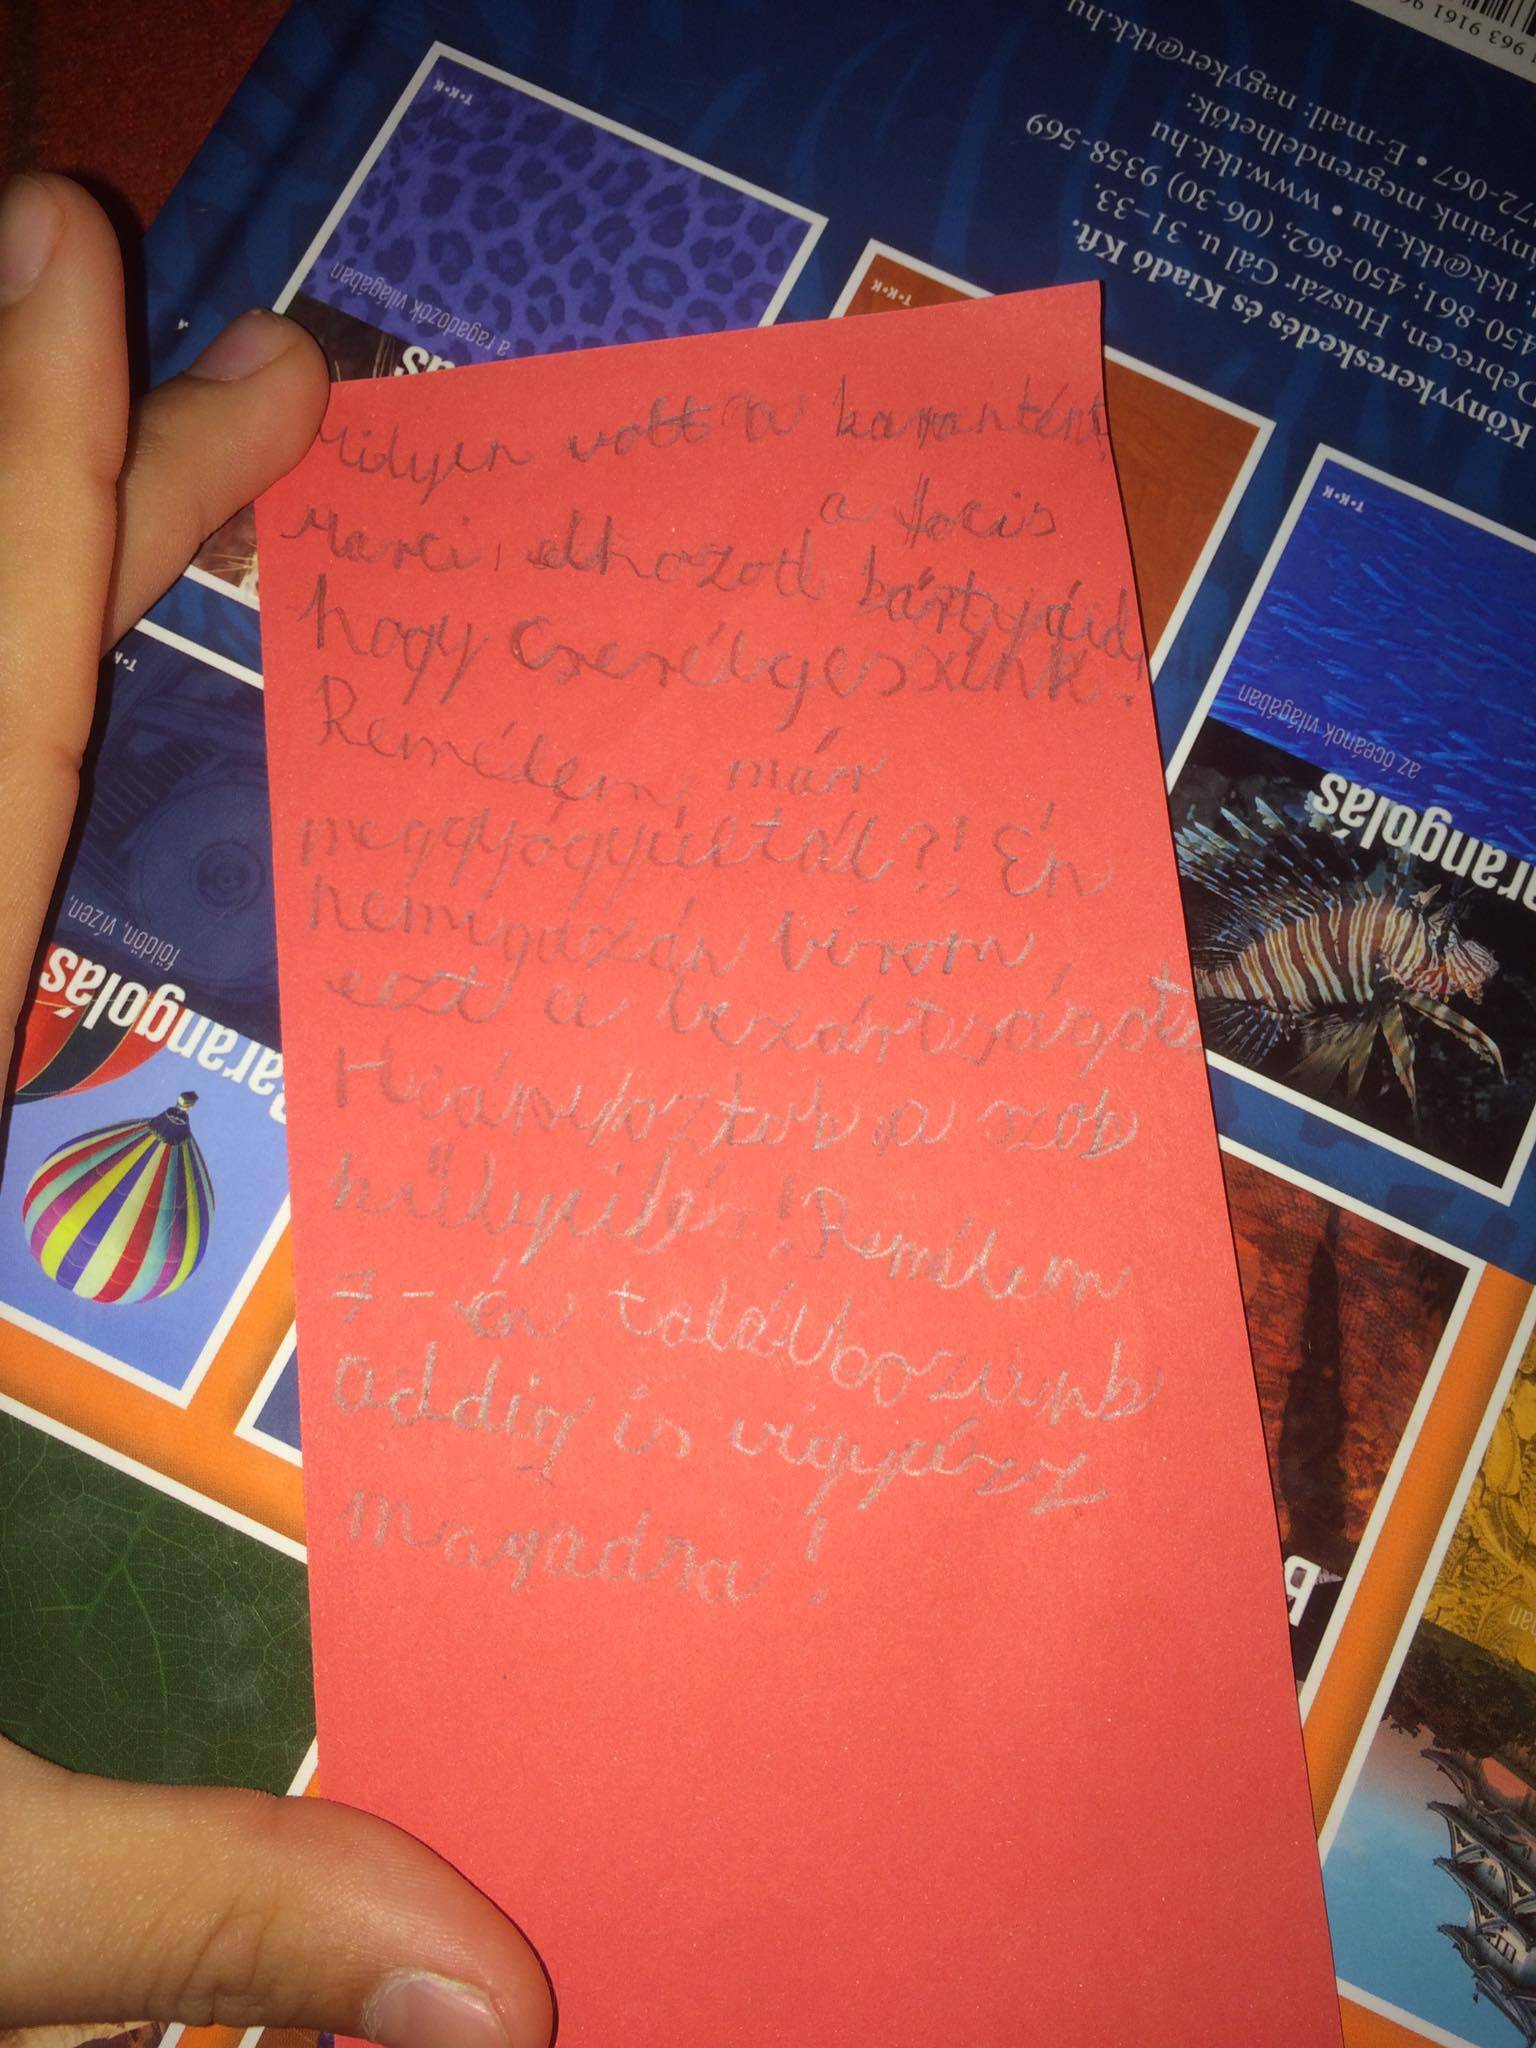 Milyen volt a karantén?
a focis
Marci, elhozod kártyáid,
hogy cserélgessünk.
Remélem, már
meggyógyúltál?! Én
nemigazán bírom,
ezt a bezártságot.
Hiányoztok a szob
hűlyeilés! Remélem
7-én találkozunk
addig is vigyázz
magadra!
963 9161 9
nagyker@tkk.hu
72-067 • E-mail:
nyaink megrendelhetők:
tkk@tkk.hu • www.tkk.hu
450-861; 450-862; (06-30) 9358-569
Debrecen, Huszár Gál u. 31–33.
Könyvkereskedés és Kiadó Kft.
T•K•K
a ragadozók világában
T•K•K
T•K•K
az óceánok világában
arangolás
T•K•K
földön, vízen,
arangolás